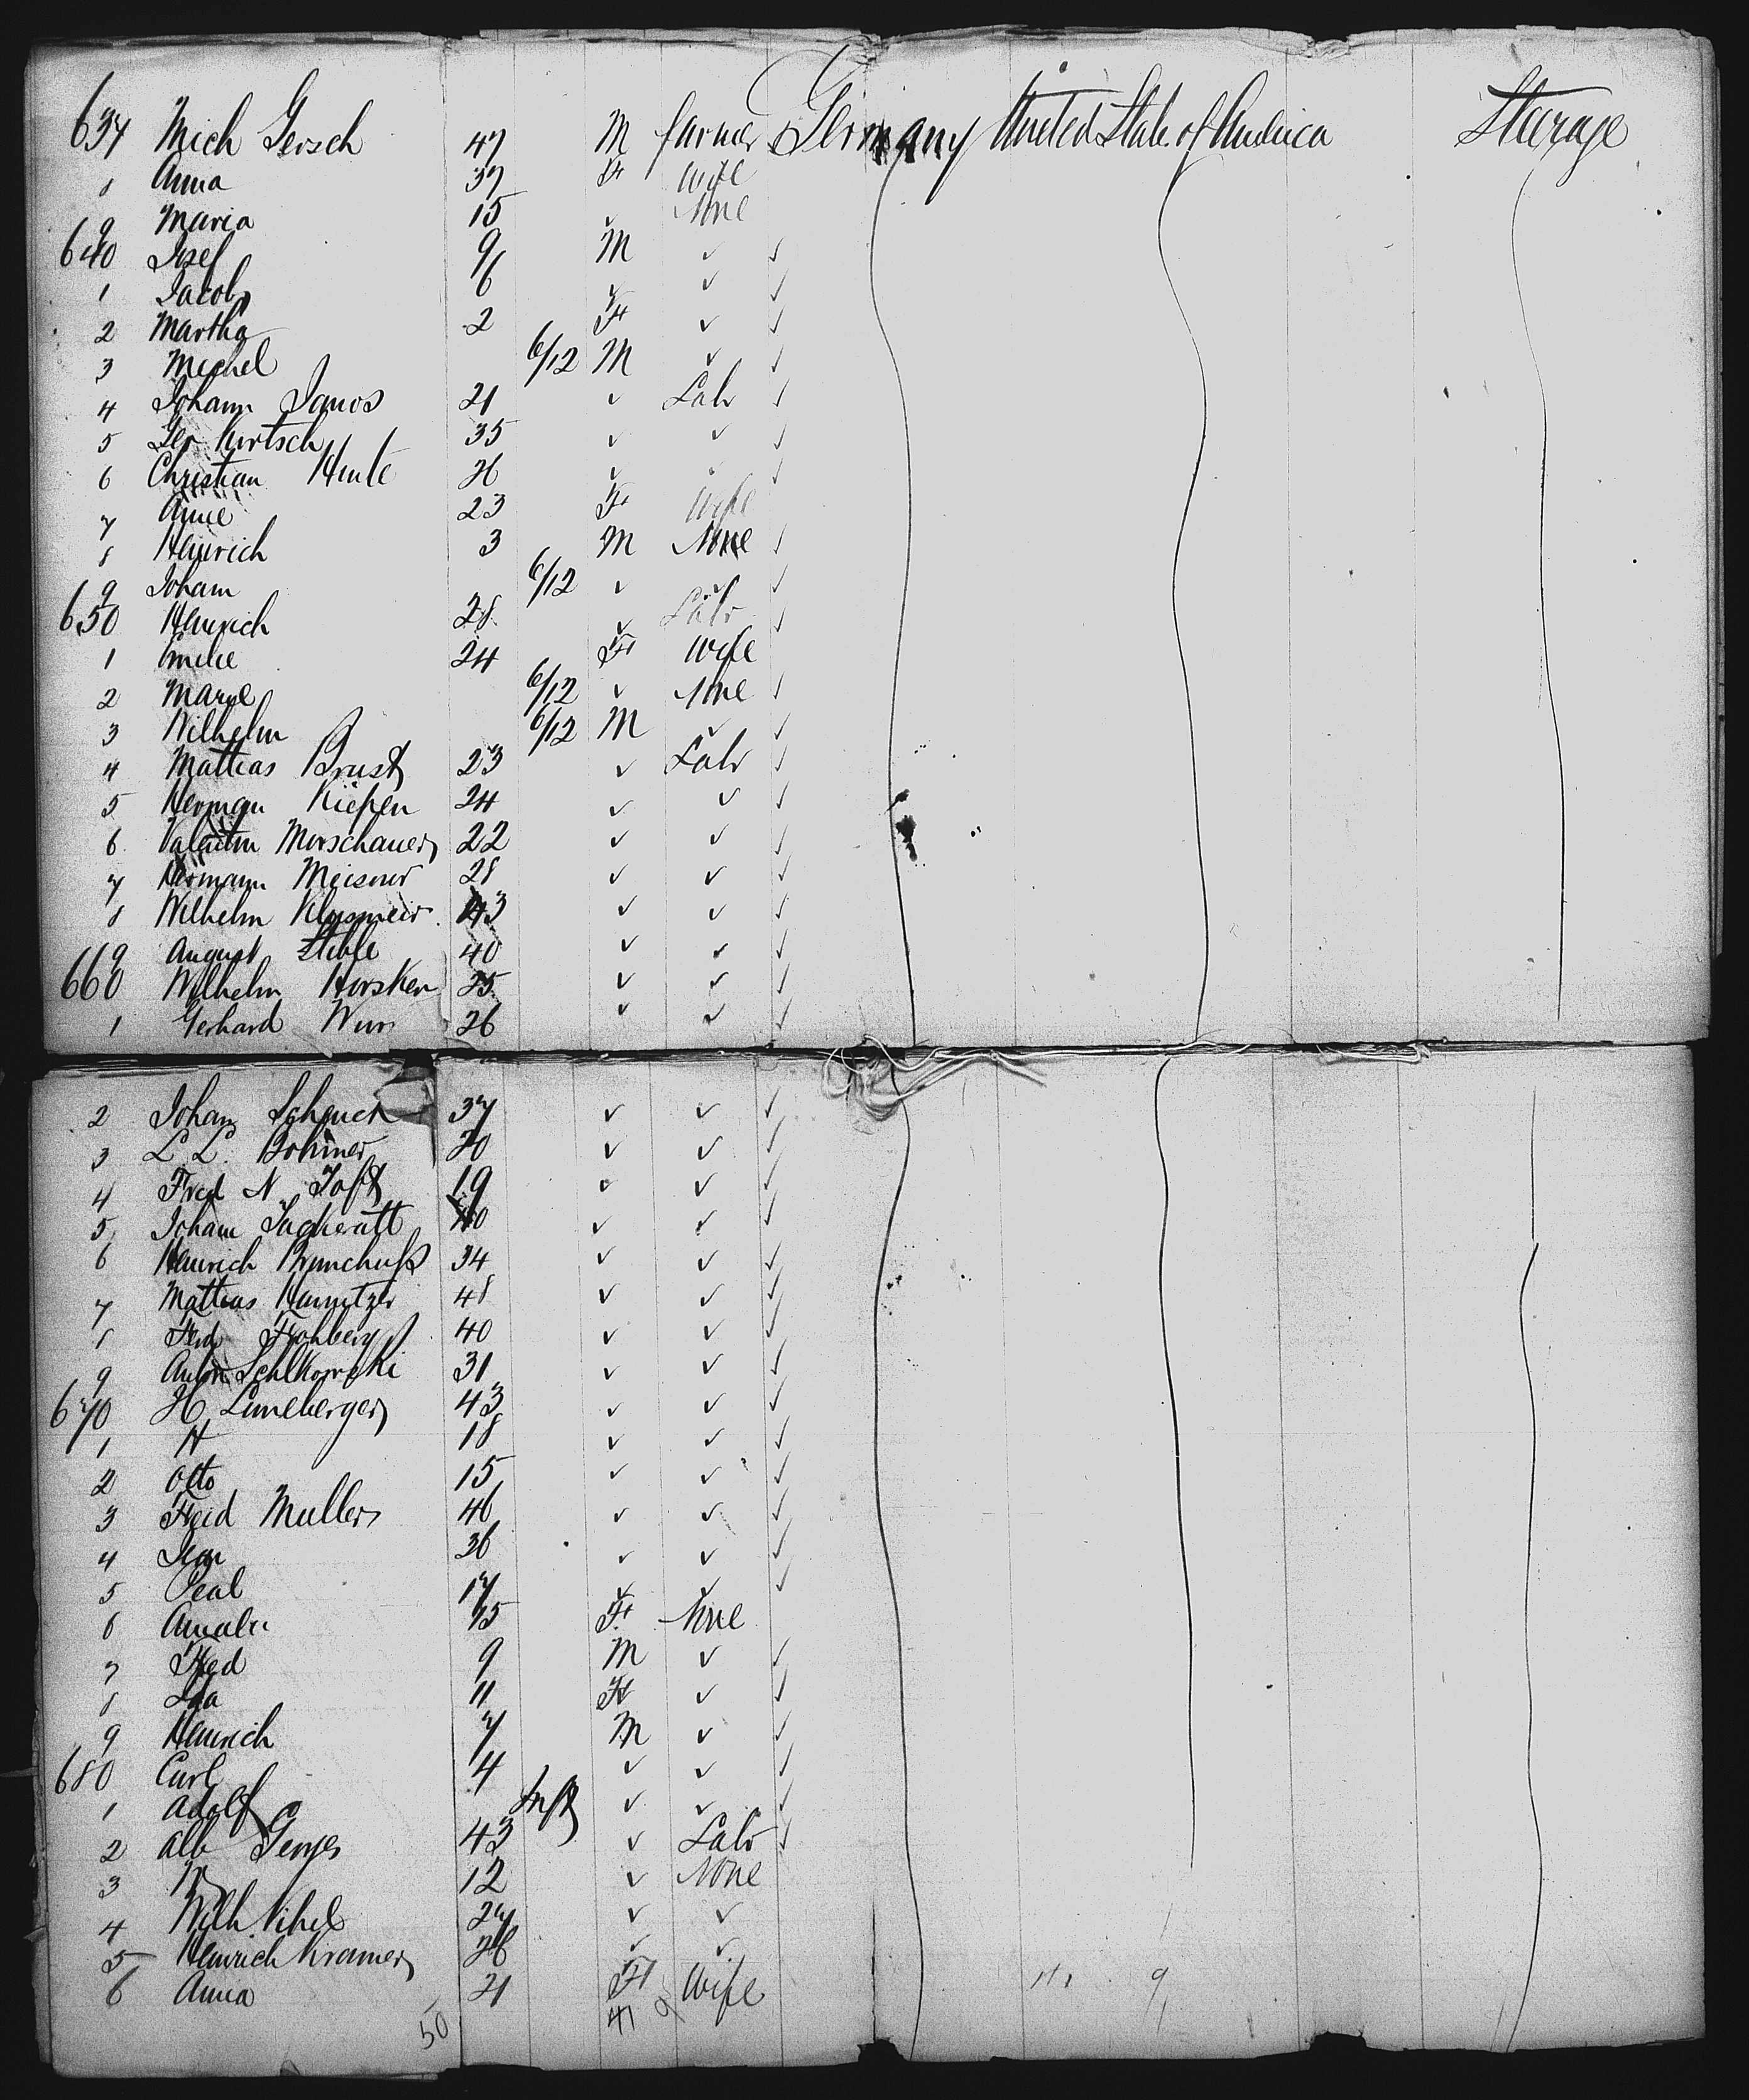 637 Mich Gersch 47 M farmer Germany United State of America Steerage
8 Anna 37 F Wife
9 Maria 15 ✓ None
640 Josef 9 M ✓ ✓
1 Jacob 6 ✓ ✓ ✓
2 Martha 2 F ✓ ✓
3 Michel 6/12 M ✓ ✓
4 Johann Janos 21 ✓ Labr ✓
5 Kirtsch 35 ✓ ✓ ✓
6 Christian Hinte 26 ✓ ✓
7 Anne 23 F Wife
8 Heinrich 3 M None ✓
9 Joham 6/12 ✓ ✓ ✓
650 Heinrich 28 ✓ Labr ✓
1 Emilie 24 F Wife
2 Marie 6/12 ✓ None ✓
3 Wilhelm 6/12 M ✓ ✓
4 Mattias Brust 23 ✓ Labr ✓
5 Herman Kiefen 24 ✓ ✓ ✓
6 Valentin Morschauer 22 ✓ ✓ ✓
7 Hermann Meisner 28 ✓ ✓ ✓
8 Wilhelm Klusmeir 43 ✓ ✓ ✓
9 August Stible 40 ✓ ✓ ✓
660 Wilhelm Horsken 25 ✓ ✓ ✓
1 Gerhard Wurs 26 ✓ ✓ ✓
2 Johan Schenck 37 ✓ ✓ ✓
3 L L. Bohmer 20 ✓ ✓ ✓
4 Fred N Toft 19 ✓ ✓ ✓
5 Joham 40 ✓ ✓ ✓
6 Heinrich 34 ✓ ✓ ✓
7 Mattias Harnitzer 48 ✓ ✓ ✓
8 Ferd Frohberg 40 ✓ ✓ ✓
9 Anton Schlkowski 31 ✓ ✓ ✓
670 H Luneberger 43 ✓ ✓ ✓
1 H 18 ✓ ✓ ✓
2 Otto 15 ✓ ✓ ✓
3 Ferd Mullers 46 ✓ ✓ ✓
4 36 ✓ ✓ ✓
5 Peal 17 ✓ ✓ ✓
6 Amalie 15 F None
7 Fred 9 M ✓ ✓
8 Ida 11 F ✓ ✓
9 Heinrich 7 M ✓ ✓
680 Carl 4 ✓ ✓ ✓
1 Adolf Inft ✓ ✓ ✓
2 Alb Genges 43 ✓ Labr ✓
3 12 ✓ None
4 Wilh Vihel 27 ✓ ✓
5 Heinrich Kramer 26 ✓ ✓
6 Anna 21 F Wife
50 41 9